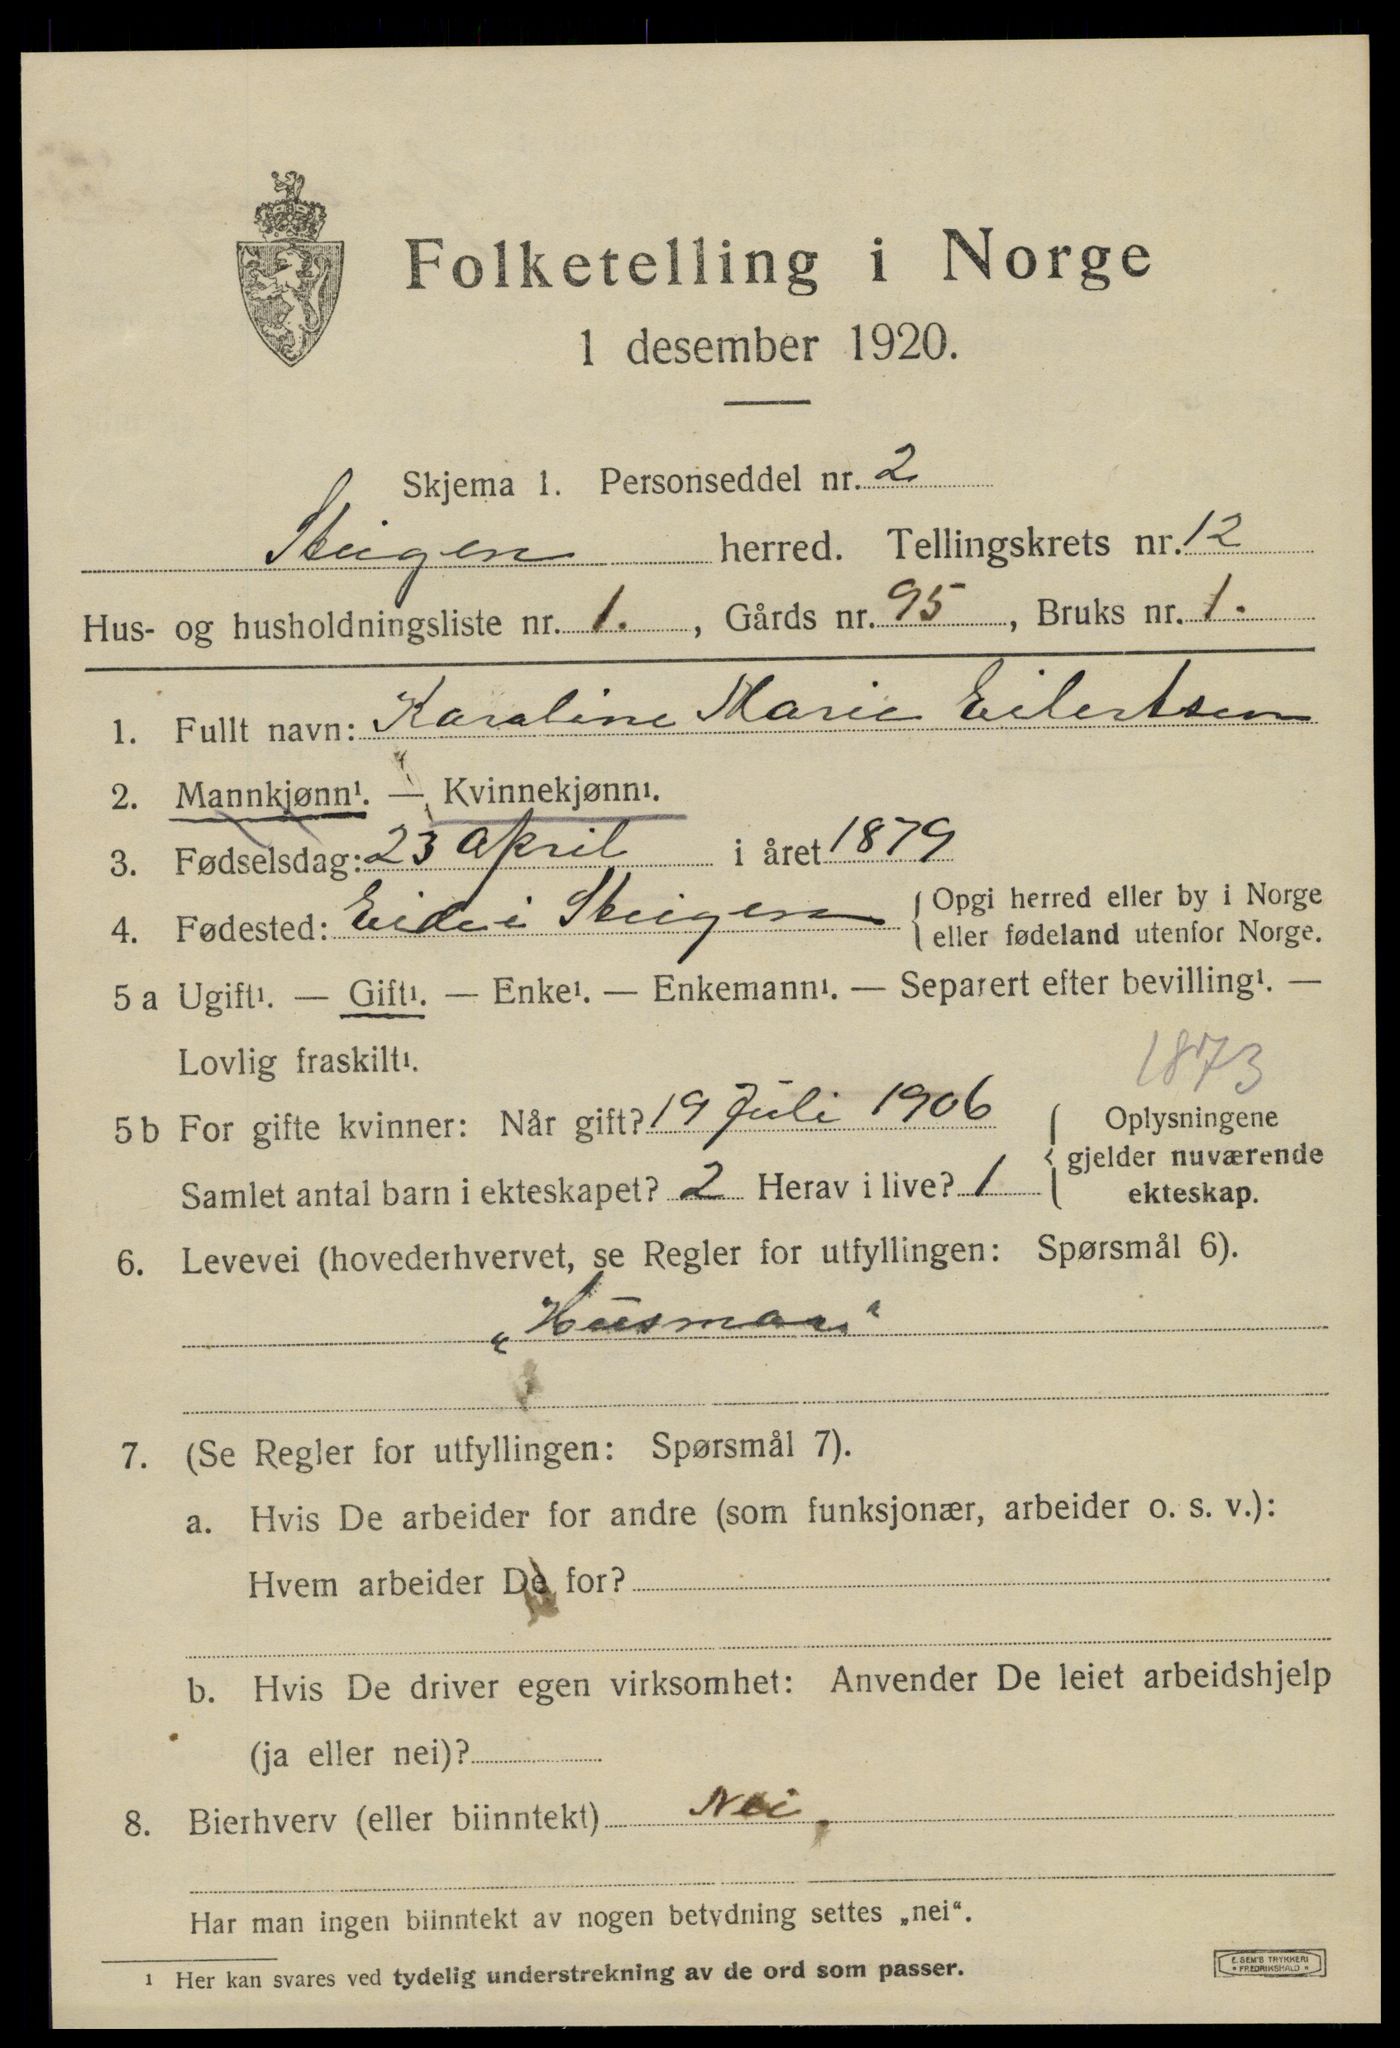 Folketelling i Norge
1 desember 1920.
Skjema 1. Personseddel nr. 2
Steigen herred. Tellingskrets nr. 12
Hus- og husholdningsliste nr. 1. , Gårds nr. 95 , Bruks nr. 1.
1. Fullt navn: Karoline Marie Eilertsen
2. Mannkjønn¹. — Kvinnekjønn¹.
3. Fødselsdag: 23 april i året 1879
4. Fødested: Eide i Steigen { Opgi herred eller by i Norge
eller fødeland utenfor Norge.
5 a Ugift¹. — Gift¹. — Enke¹. — Enkemann¹. — Separert efter bevilling¹. —
Lovlig fraskilt¹.
1873
5 b For gifte kvinner: Når gift? 19 Juli 1906 { Oplysningene
gjelder nuværende
Samlet antal barn i ekteskapet? 2 Herav i live? 1
ekteskap.
6. Levevei (hovederhvervet, se Regler for utfyllingen: Spørsmål 6).
„Husmor“
7. (Se Regler for utfyllingen: Spørsmål 7).
a. Hvis De arbeider for andre (som funksjonær, arbeider o. s. v.):
Hvem arbeider De for?
b. Hvis De driver egen virksomhet: Anvender De leiet arbeidshjelp
(ja eller nei)?
8. Bierhverv (eller biinntekt) Nei
Har man ingen biinntekt av nogen betydning settes „nei“.
¹ Her kan svares ved tydelig understrekning av de ord som passer.
E. SEM'S TRYKKERI
* FREDRIKSHALD *